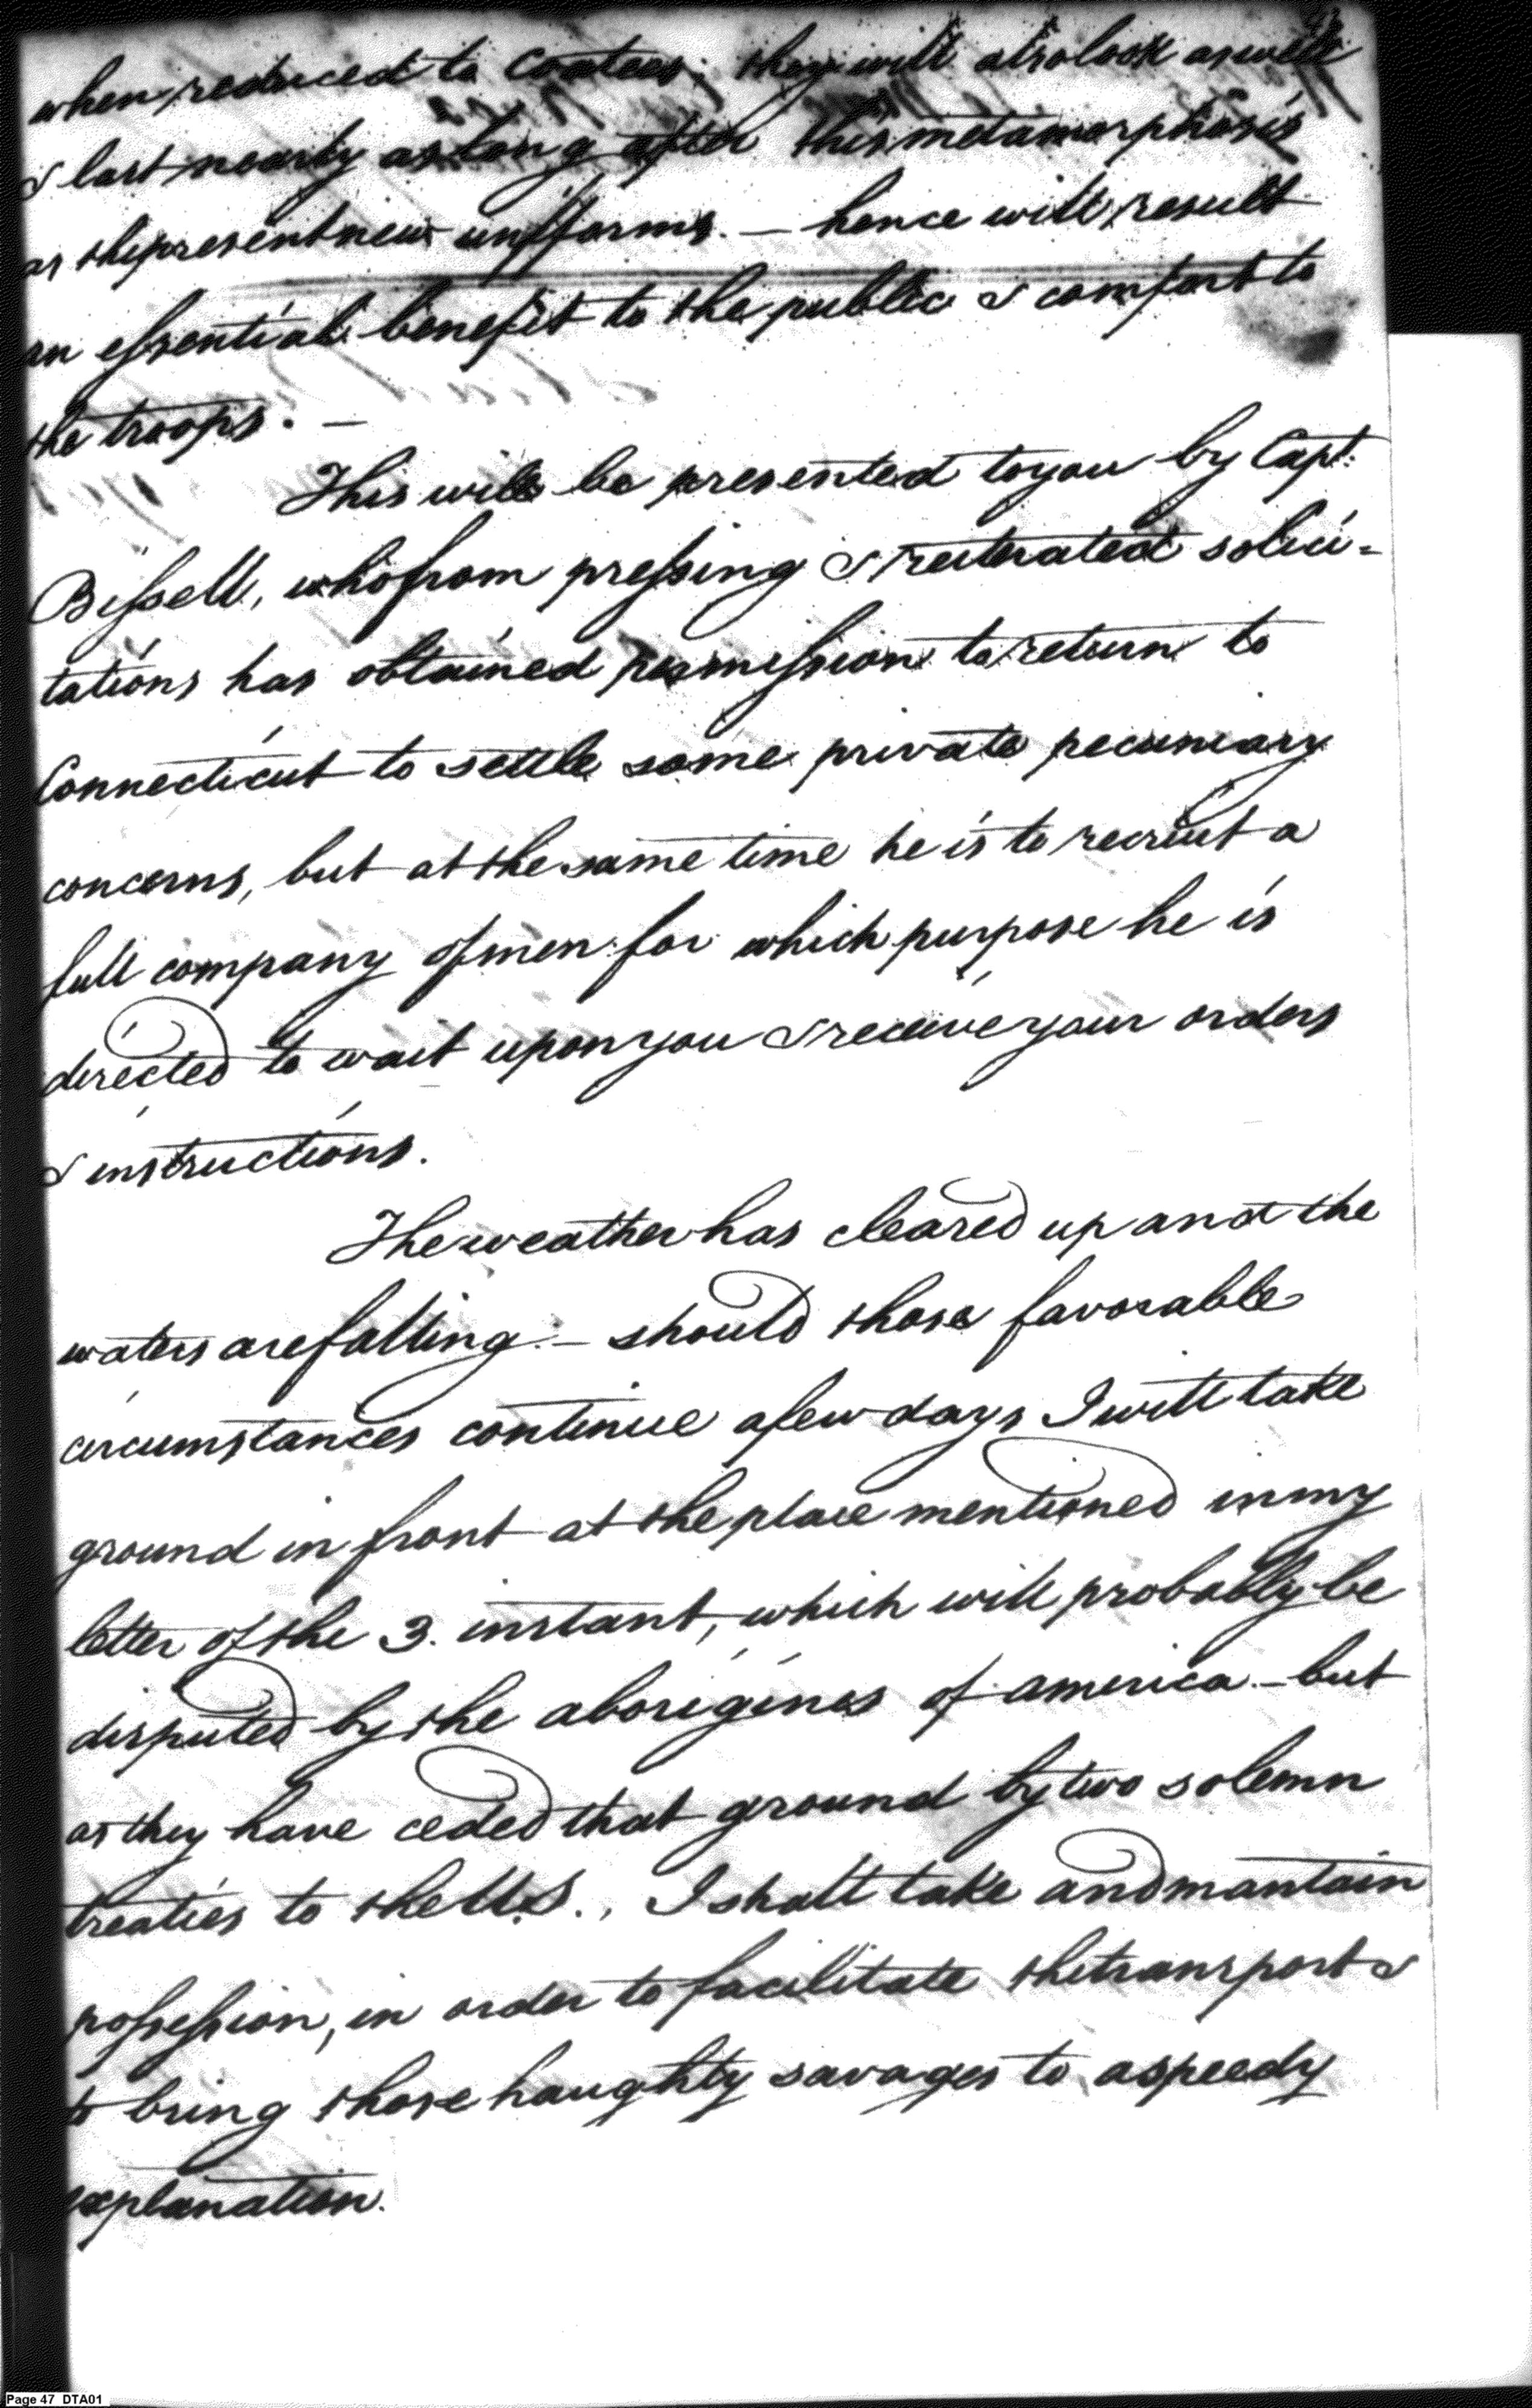 when reduced to Coatees; they will also look as well
& last nearly as long after this metamorphosis
as the present new uniforms. — hence will result
an essential benefit to the public & comfort to
the troops. —
This will be presented to you by Capt:
Bissell, who from pressing & reiterated solici=
tations has obtained permission to return to
Connecticut to settle some private pecuniary
concerns, but at the same time he is to recruit a
full company of men for which purpose he is
directed to wait upon you & receive your orders
& instructions.
The weather has cleared up and the
waters are falling: — should those favorable
circumstances continue a few days I will take
ground in front at the place mentioned in my
letter of the 3. instant, which will probably be
disputed by the aborigines of america — but
as they have ceded that ground by two solemn
treaties to the U.S., I shall take and mantain
possession, in order to facilitate the transport &
to bring those haughty savages to a speedy
explanation.
Page 47 DTA01